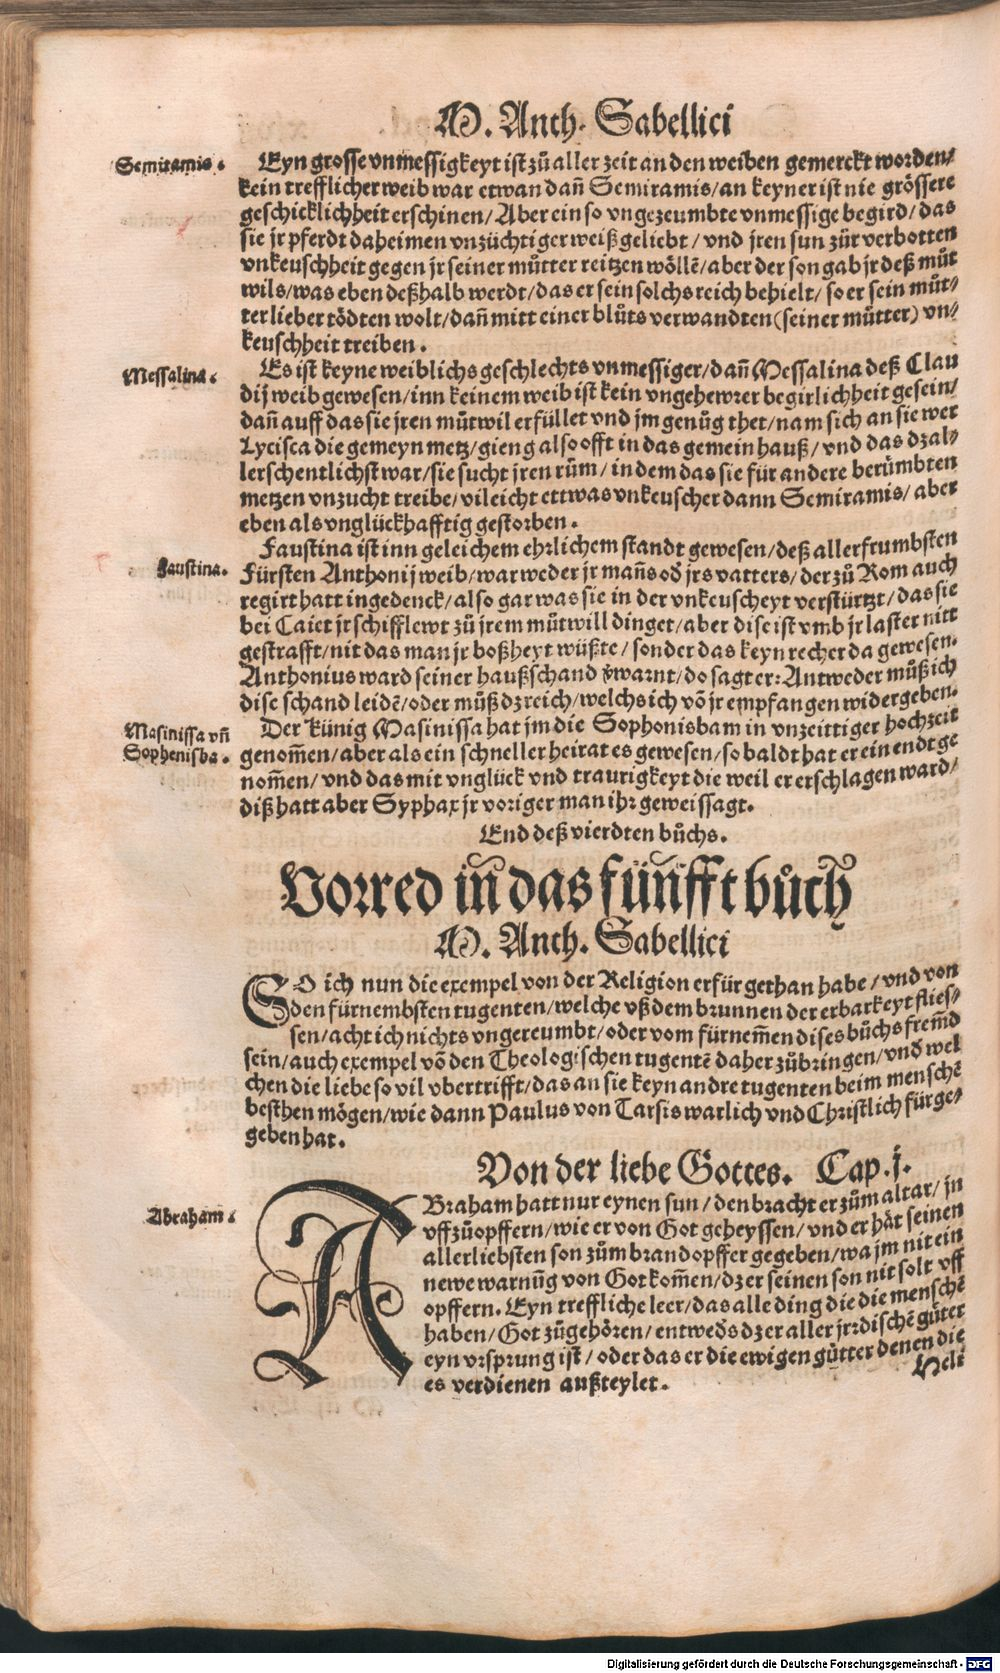 M. Anth. Sabellici
Semiramis.
Eyn grosse vnmessigkeyt ist zů aller zeit an den weiben gemerckt worden/
kein trefflicher weib war etwan dañ Semiramis/ an keyner ist nie grössere
geschicklichheit erschinen/ Aber ein so vngezeumbte vnmessige begird/ das
sie jr pferdt daheimen vnzüchtiger weiß geliebt/ vnd jren sun zür verbotten
vnkeuschheit gegen jr seiner můtter reitzen wöllē/ aber der son gab jr deß můt
wils/ was eben deßhalb werdt/ das er sein solchs reich behielt/ so er sein můt/
ter lieber tödten wolt/ dañ mitt einer blůts verwandten (seiner můtter) vn/
keuschheit treiben.
Messalina.
Es ist keyne weiblichs geschlechts vnmessiger/ dañ Messalina deß Clau
dij weib gewesen/ inn keinem weib ist kein vngehewrer begirlichheit gesein/
dañ auff das sie jren můtwil erfüllet vnd jm genůg thet/ nam sich an sie wer
Lycisca die gemeyn metz/ gieng also offt in das gemein hauß/ vnd das dz al/
lerschentlichst war/ sie sucht jren rům/ in dem das sie für andere berümbten
metzen vnzucht treibe/ vileicht ettwas vnkeuscher dann Semiramis/ aber
eben als vnglückhafftig gestorben.
Faustina.
Faustina ist inn geleichem ehrlichem standt gewesen/ deß allerfrumbsten
Fürsten Anthonij weib/ war weder jr mañs od jrs vatters/ der zů Rom auch
regirt hatt ingedenck/ also gar was sie in der vnkeuscheyt verstürtzt/ das sie
bei Caiet jr schifflewt zů jrem můtwill dinget/ aber dise ist vmb jr laster nitt
gestrafft/ nit das man jr boßheyt wüßte/ sonder das keyn recher da gewesen.
Anthonius ward seiner haußschand v̄warnt/ do sagt er: Antweder můß ich
dise schand leidē/ oder můß dz reich/ welchs ich vō jr empfangen widergeben.
Masinissa vñ
Sophenisba.
Der künig Masinissa hat jm die Sophonisbam in vnzeittiger hochzeit
genom̄en/ aber als ein schneller heirat es gewesen/ so baldt hat er ein endt ge
nom̄en/ vnd das mit vnglück vnd traurigkeyt die weil er erschlagen ward/
diß hatt aber Syphax jr voriger man ihr geweissagt.
End deß vierdten bůchs.
Vorred iñ das füñfft bůch
M. Anth. Sabellici
SO ich nun die exempel von der Religion erfür gethan habe/ vnd von
den fürnembsten tugenten/ welche vß dem brunnen der erbarkeyt flies/
sen/ acht ich nichts vngereumbt/ oder vom fürnem̄en dises bůchs frem̄d
sein/ auch exempel vō den Theologischen tugentē daher zůbringen/ vnd wel
chen die liebe so vil vbertrifft/ das an sie keyn andre tugenten beim menschē
besthen mögen/ wie dann Paulus von Tarsis warlich vnd Christlich fürge/
geben hat.
Von der liebe Gottes. Cap. j.
Abraham.
ABraham hatt nur eynen sun/ den bracht er zům altar/ jn
vffzůopffern/ wie er von Got geheyssen/ vnd er hät seinen
allerliebsten son zům brandopffer gegeben/ wa jm nit ein
newe warnūg von Got kom̄en/ dz er seinen son nit solt vff
opffern. Eyn treffliche leer/ das alle ding die die menschē
haben/ Got zůgehören/ entweds dz er aller jrrdischē gůter
eyn vrsprung ist/ oder das er die ewigen gůtter denen die
es verdienen außteylet.
Heli
Digitalisierung gefördert durch die Deutsche Forschungsgemeinschaft - DFG